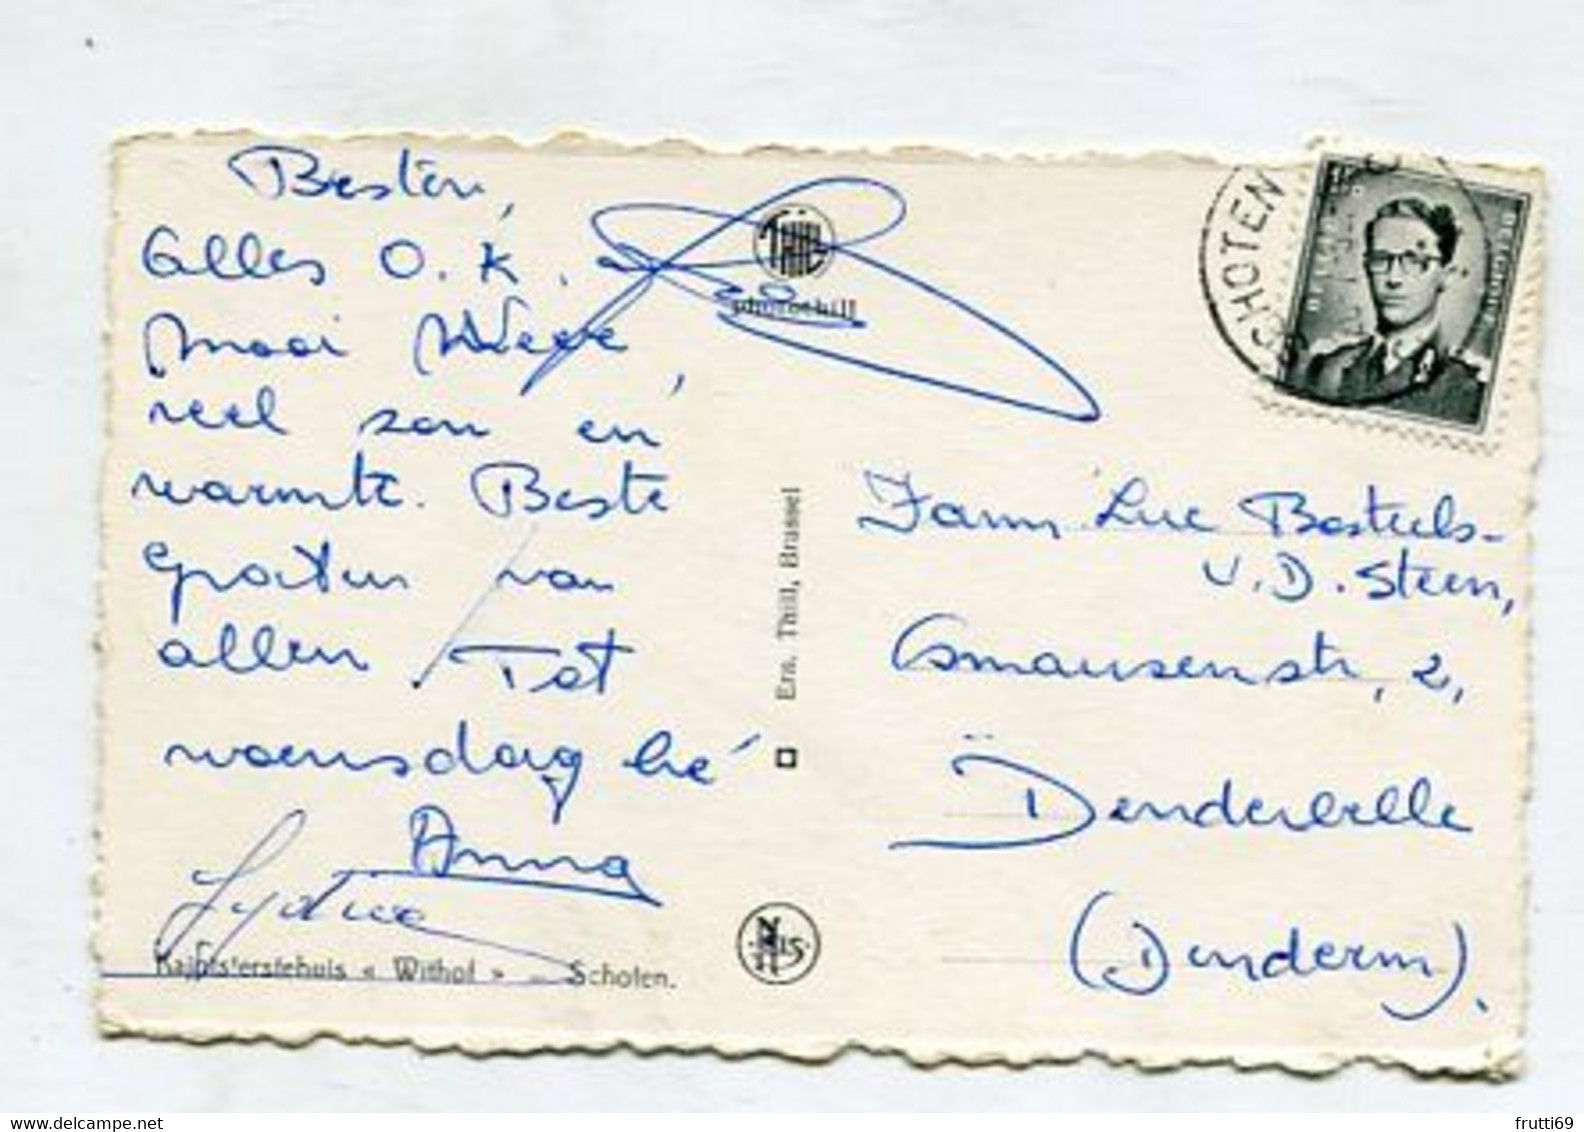 Besten,
Alles O.K.
Mooi Weer,
veel zon en
warmte. Beste
groeten van
allen Tot
woensdag hé
Anna
Lydia
Kajotstersfehuis « Withof » – Schoten.
THILL
photothill
Ern. Thill, Brussel
NELS
SCHOTEN
BELGIQUE
Fam Luc Bosteels-
V.D. Steen,
2,
Denderbelle
(Denderm).
frutti69